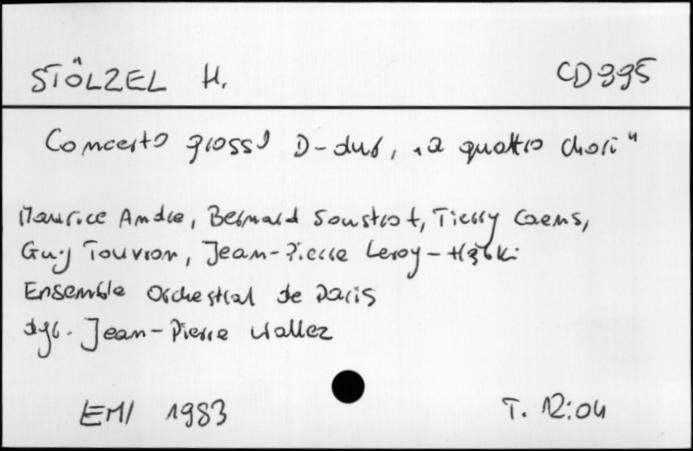 STÖLZEL H. CD 995
Concerto grosso D-dur, „a quattro chori"
Maurice Andre, Bernard Soustrot, Tierry Caens,
Guy Touvron, Jean-Pierre Leroy - trąbki
Ensemble Orchestral de Paris
dyr. Jean-Pierre Wallez
EMI 1983 T. 12:04